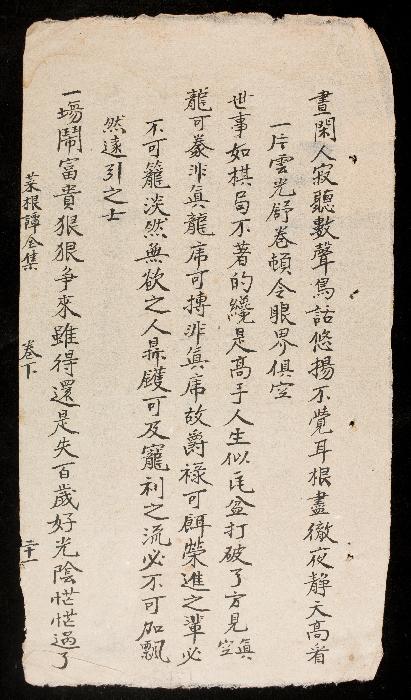 晝閑人寂聽數聲鳥語悠揚不覺耳根盡徹夜静天高看
一片雲光舒卷頓令眼界俱空
世事如棋局不著的纔是高手人生似瓦盆打破了方見真空
龍可豢非真龍虎可搏非真虎故爵祿可餌榮進之輩必
不可籠淡然無欲之人鼎鑊可及寵利之流必不可加飄
然遠引之士
一場鬧富貴狠狠爭來雖得還是失百歲好光陰忙忙過了
菜根譚全集 卷下 二十一